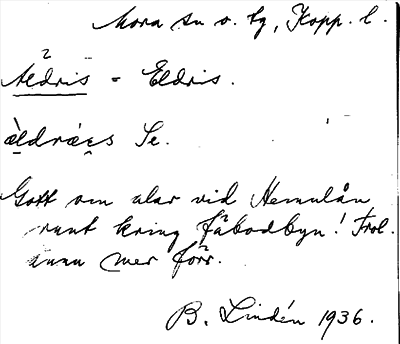 Mora sn o. tg, Kopp. l.
Äldris = Eldris.
àldráes Se.
Gott om alar vid Hemulån
runt kring fäbodbyn! Trol.
ännu mer förr.
B. Lindén 1936.